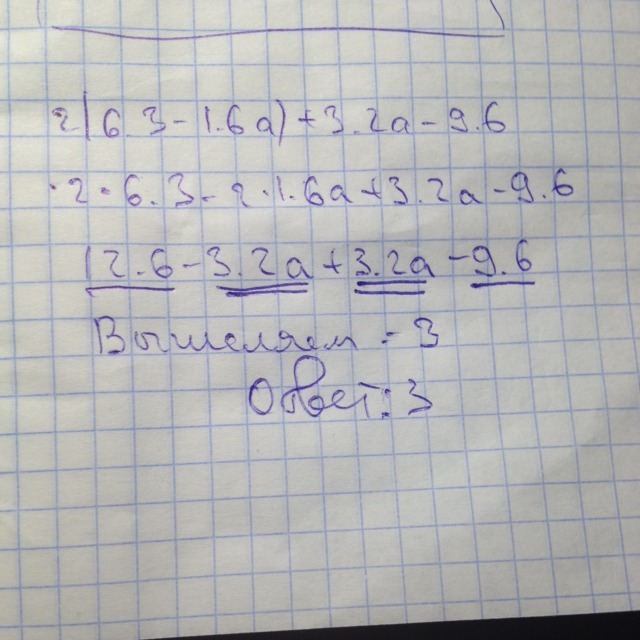 2(6.3-1.6a)+3.2a-9.6
·2·6.3-2·1.6a+3.2a-9.6
12.6-3.2a+3.2a-9.6
Вычеслаем - 3
Ответ: 3